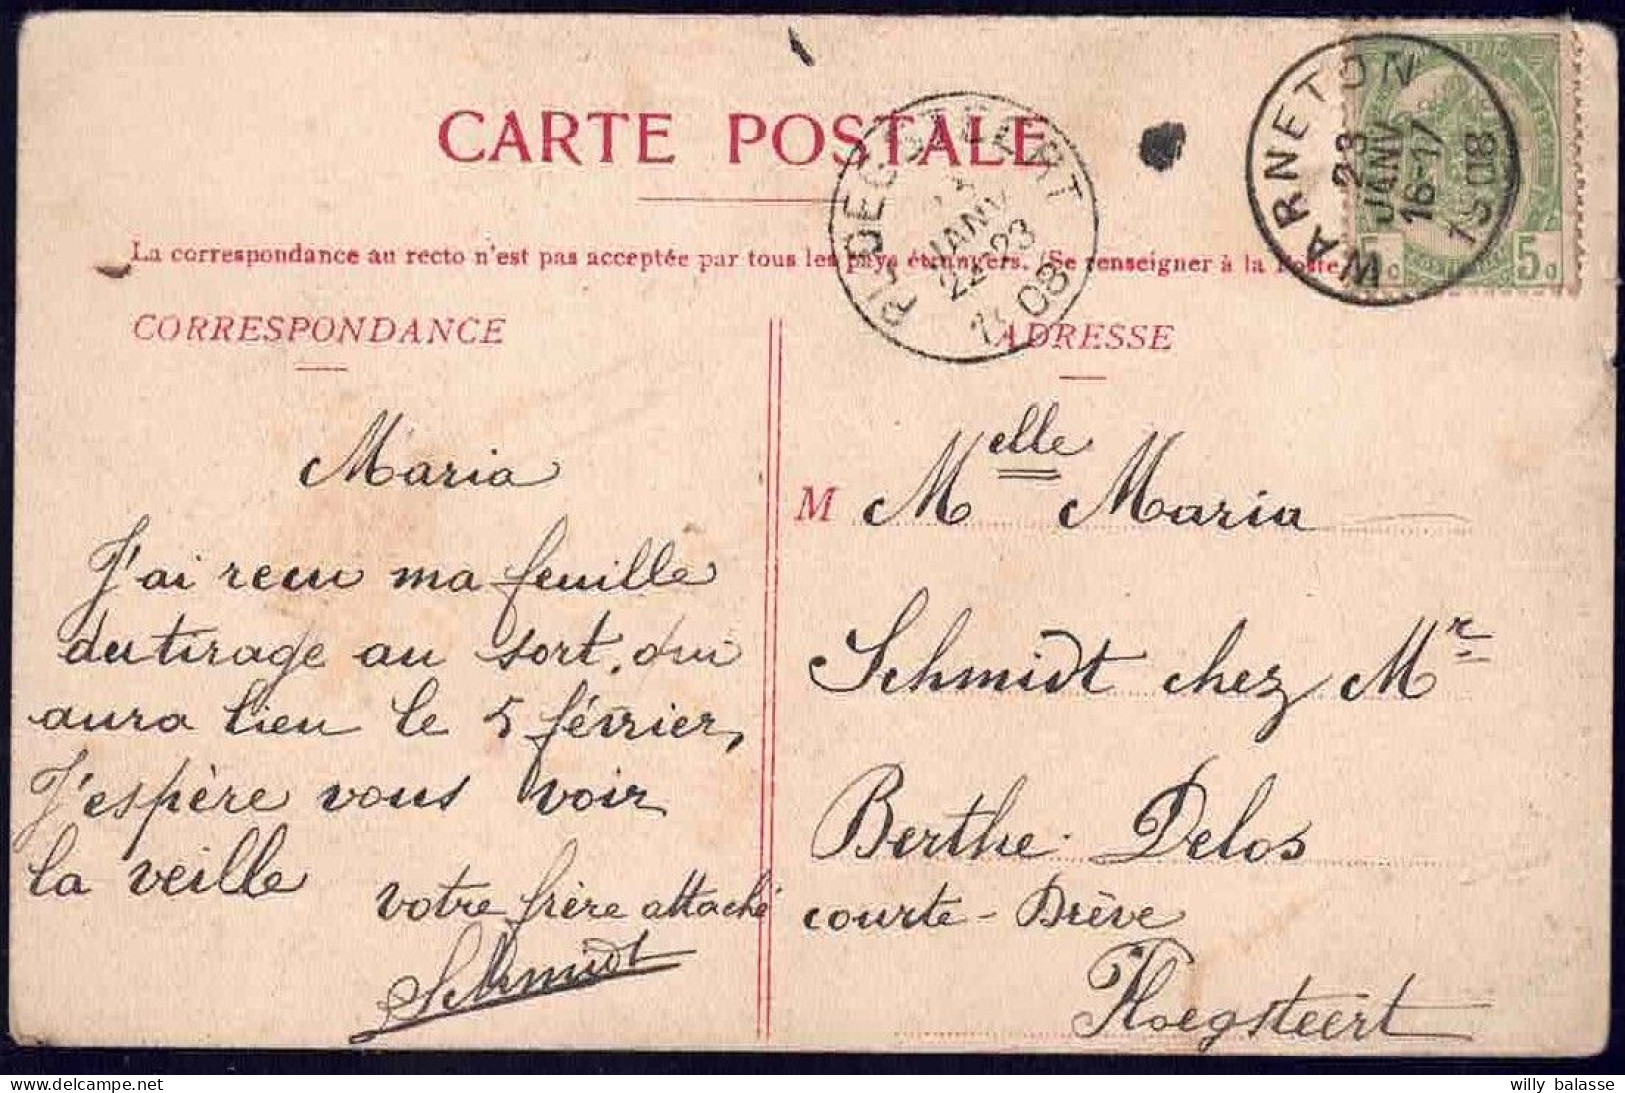 CARTE POSTALE
WARNETON
23
JANV
16-17
1908
5c
5c
JANV
22-23
08
La correspondance au recto n'est pas acceptée par tous les pays étrangers. (Se renseigner à la Poste
CORRESPONDANCE
ADRESSE
Maria
J'ai recu ma feuille
du tirage au sort, qui
aura lieu le 5 février,
J'espère vous voir
la veille
votre frère attaché
Schmidt
M Melle Maria
Schmidt chez Mr
Berthe Delos
courte-Drève
Ploegsteert
willy balasse